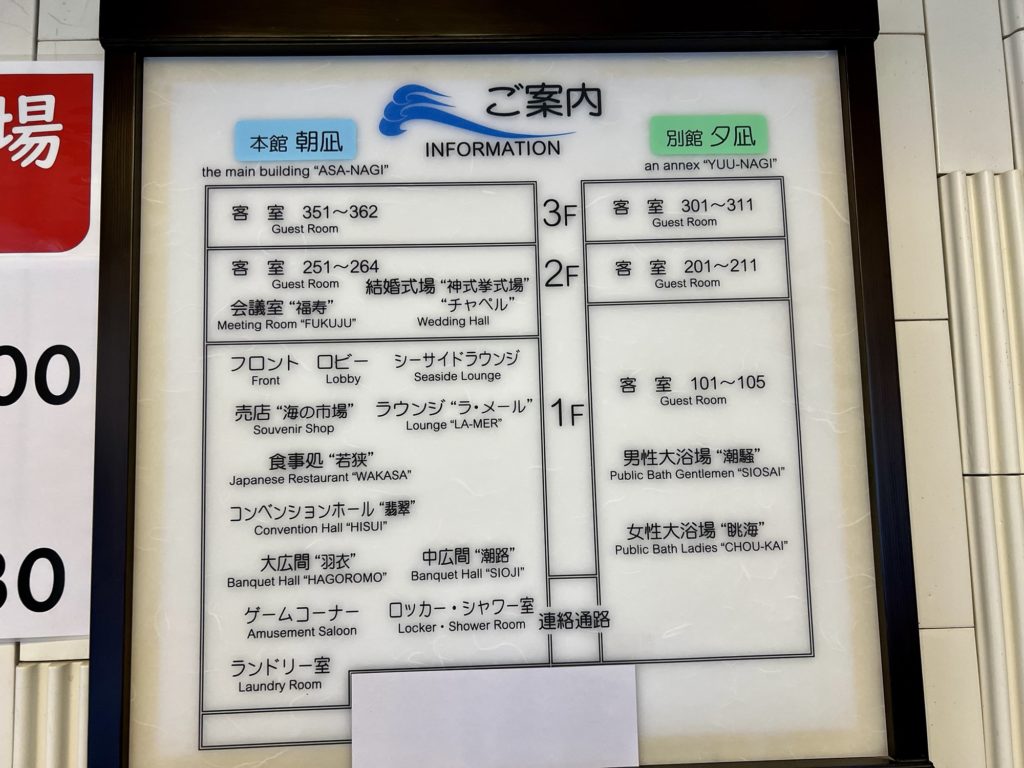 場
00
30
ご案内
INFORMATION
本館 朝凪
the main building “ASA-NAGI”
別館 夕凪
an annex “YUU-NAGI”
3F
客 室 351～362
Guest Room
客 室 301～311
Guest Room
2F
客 室 251～264
Guest Room
結婚式場 “神式挙式場”
“チャペル”
Wedding Hall
会議室 “福寿”
Meeting Room “FUKUJU”
客 室 201～211
Guest Room
1F
フロント ロビー シーサイドラウンジ
Front Lobby Seaside Lounge
売店 “海の市場” ラウンジ “ラ・メール”
Souvenir Shop Lounge “LA-MER”
食事処 “若狭”
Japanese Restaurant “WAKASA”
コンベンションホール “翡翠”
Convention Hall “HISUI”
大広間 “羽衣” 中広間 “潮路”
Banquet Hall “HAGOROMO” Banquet Hall “SIOJI”
ゲームコーナー ロッカー・シャワー室
Amusement Saloon Locker・Shower Room
ランドリー室
Laundry Room
連絡通路
客 室 101～105
Guest Room
男性大浴場 “潮騒”
Public Bath Gentlemen “SIOSAI”
女性大浴場 “眺海”
Public Bath Ladies “CHOU-KAI”